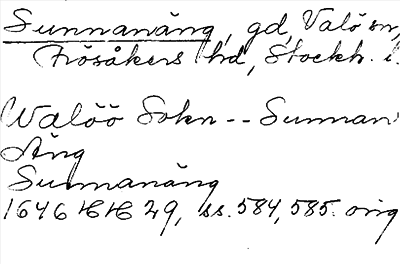 Sunnanäng, gd, Valö sn,
Frösåkers hd, Stockh. l.
Walöö Sokn -- Sunnan
Äng
Sunnanäng
1646 HH 29, ss. 584, 585. orig